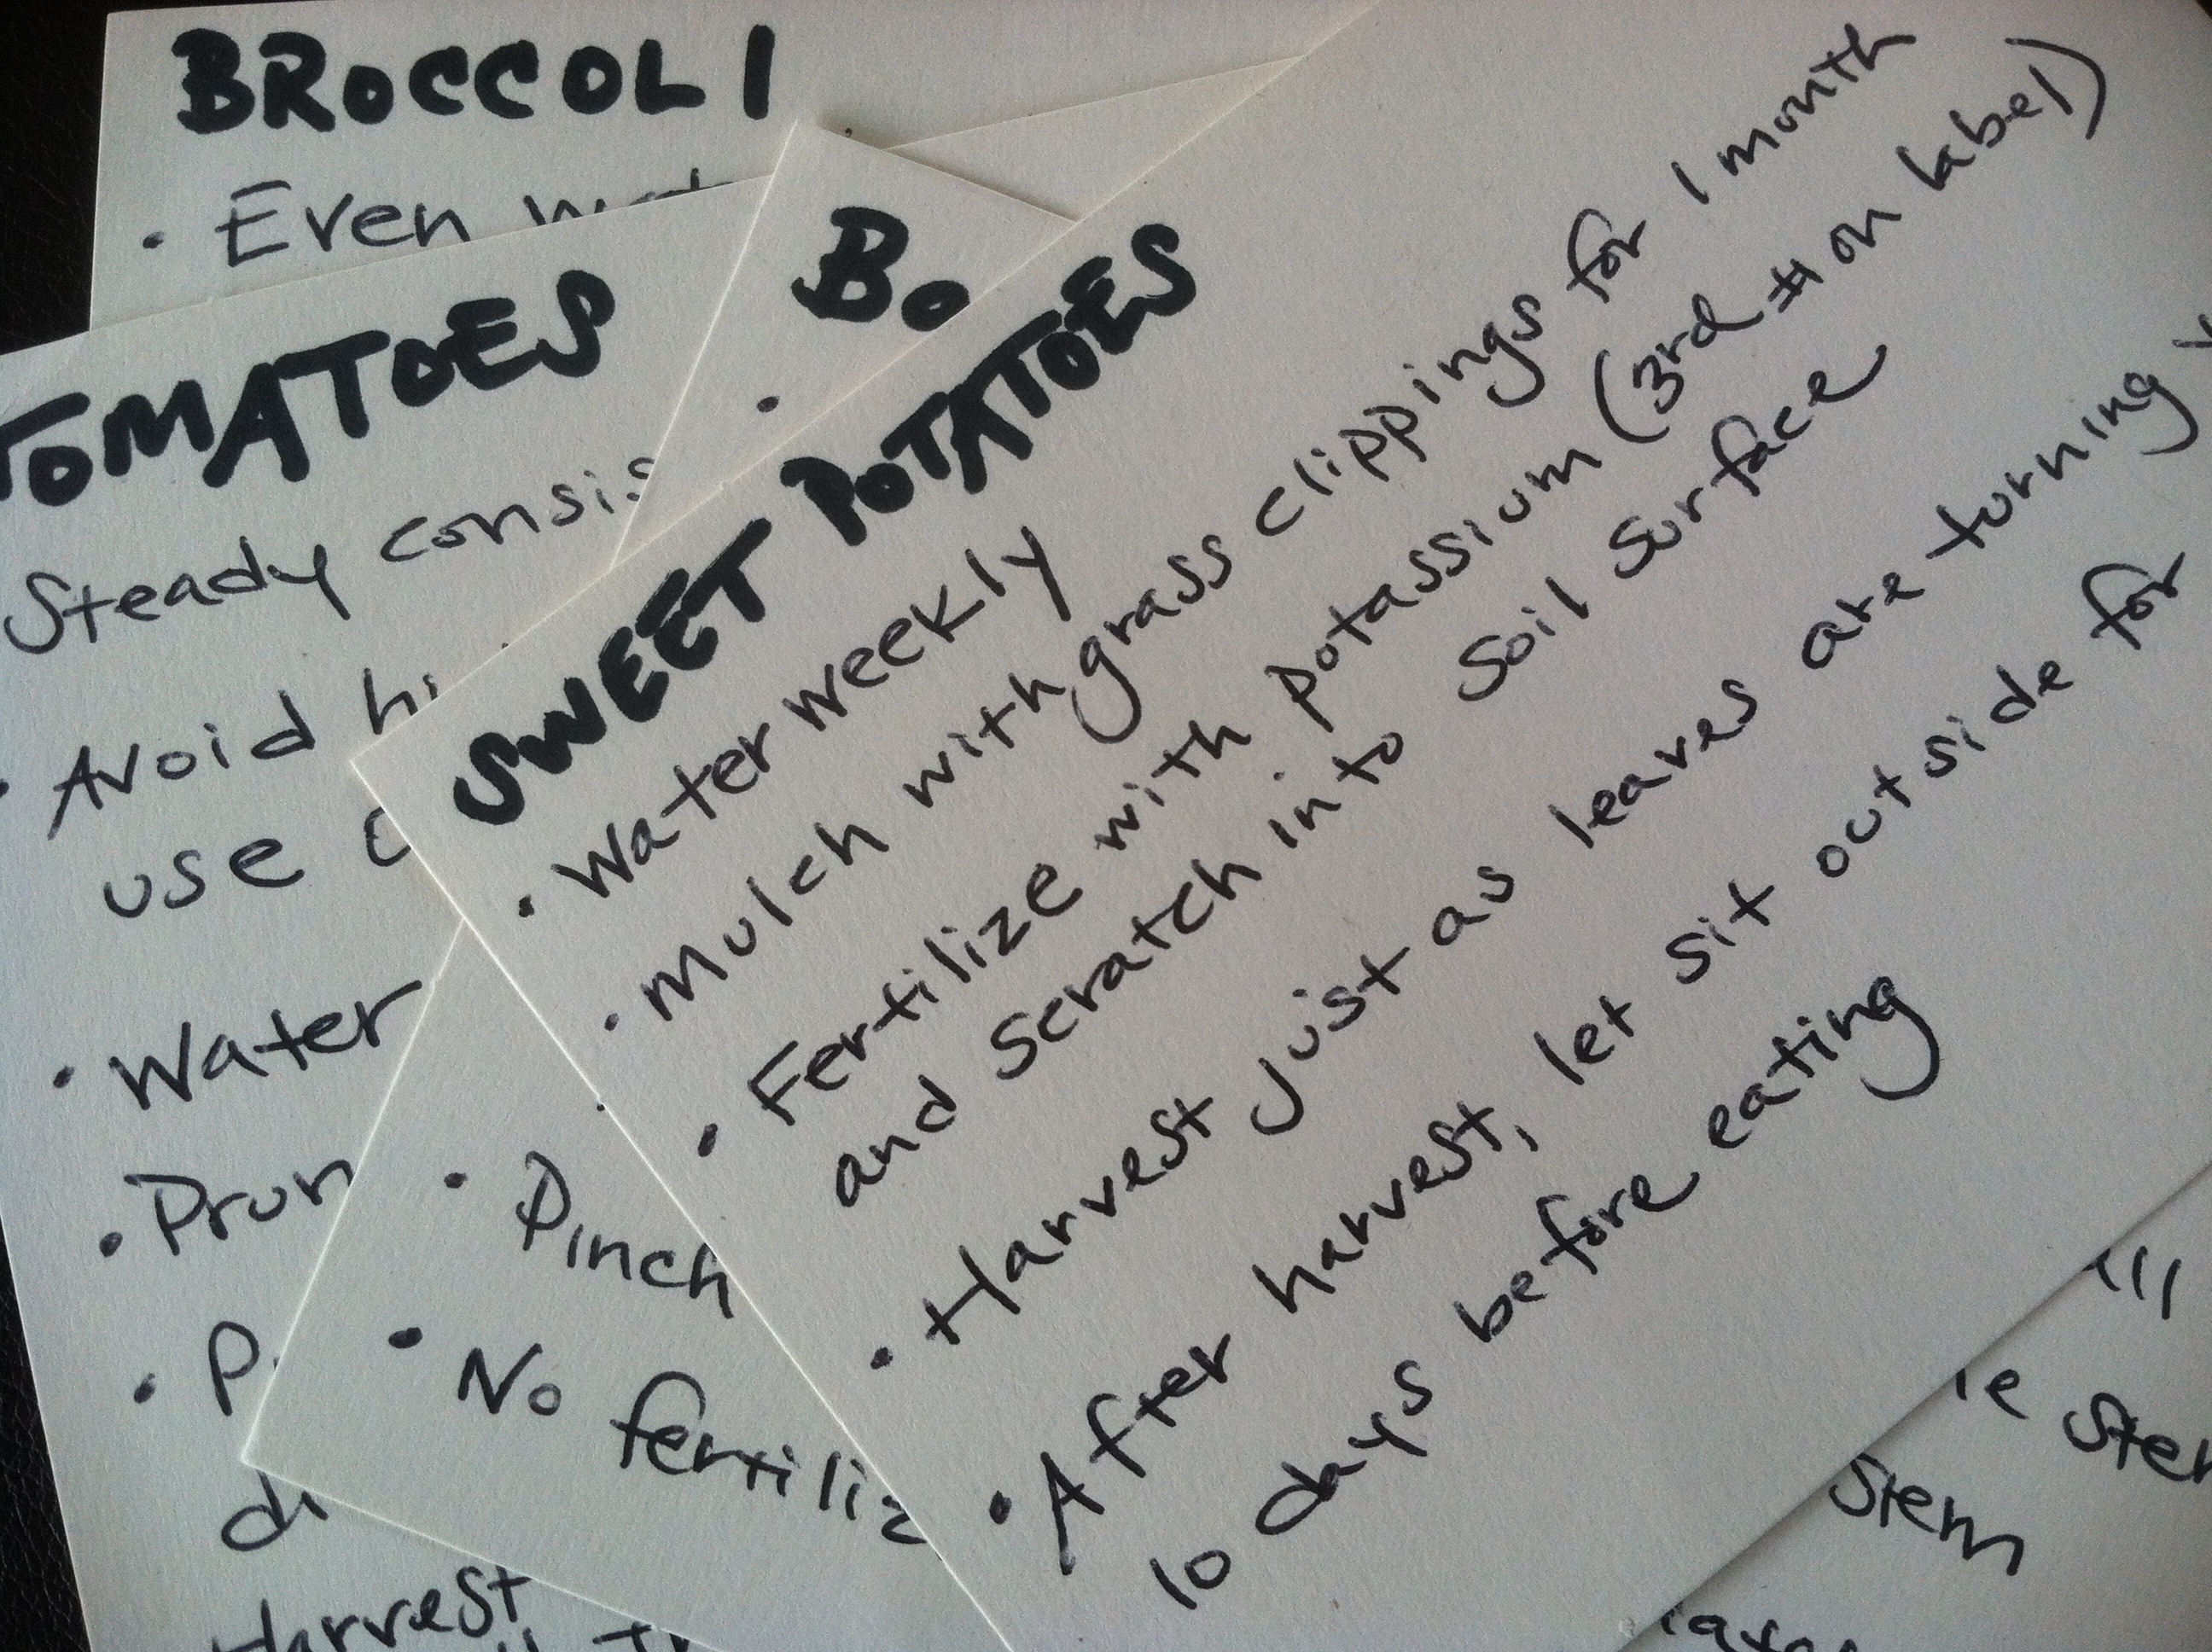 BROCCOLI
• Even
TOMATOES
Steady consis
• Avoid hi
use
• Water
• Prun
• P
Harvest
Bo
•
• Pinch
• No fertiliz
SWEET POTATOES
• Water weekly
• Mulch with grass clippings for 1 month
• Fertilize with potassium (3rd # on label)
and scratch into soil surface
• Harvest just as leaves are turning y
• After harvest, let sit outside for
10 days before eating
le stem
stem